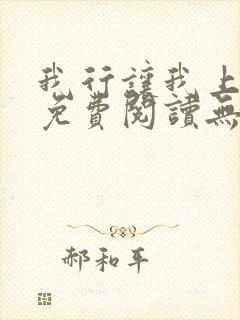 我行讓我上
免費閱讀無
郝和平